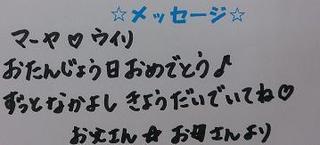 ☆メッセージ☆
マーヤ♡ウイリ
おたんじょう日おめでとう♪
ずっとなかよしきょうだいでいてね♡
お父さん☆お母さんより